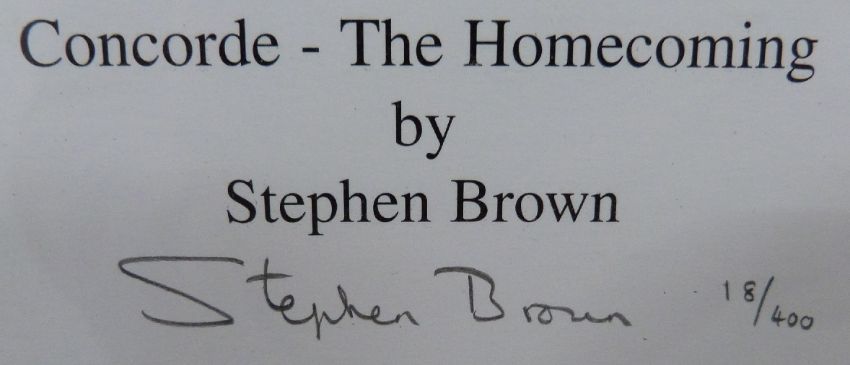 Concorde - The Homecoming
by
Stephen Brown
Stephen Brown 18/400